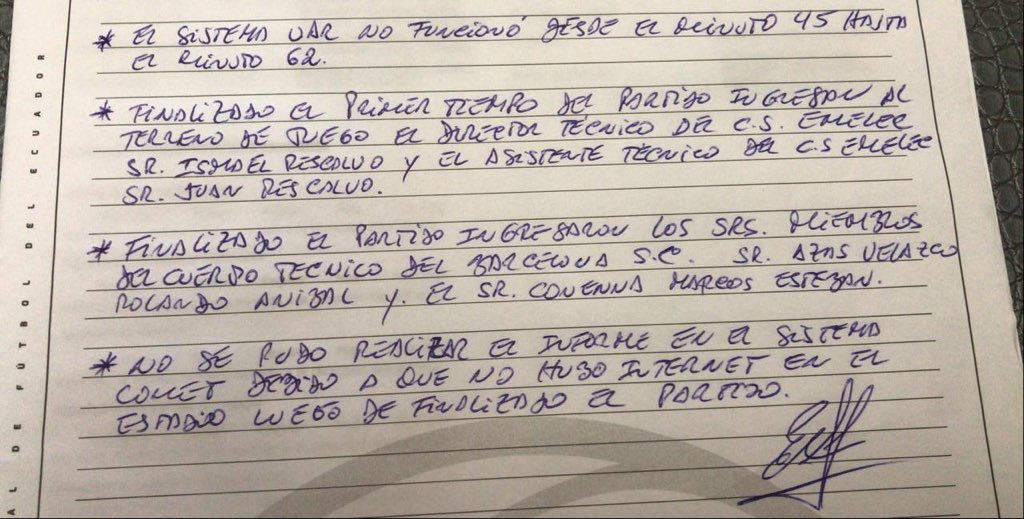 * EL SISTEMA VAR NO FUNCIONÓ DESDE EL MINUTO 45 HASTA
EL MINUTO 62.
* FINALIZADO EL PRIMER TIEMPO DEL PARTIDO INGRESAN AL
TERRENO DE JUEGO EL DIRECTOR TÉCNICO DEL C.S. EMELEC
SR. ISMAEL RESCALVO Y EL ASISTENTE TÉCNICO DEL C.S EMELEC
SR. JUAN RESCALVO.
* FINALIZADO EL PARTIDO INGRESARON LOS SRS. MIEMBROS
DEL CUERPO TECNICO DEL BARCELONA S.C. SR. AZAS VELAZCO
ROLANDO ANIBAL Y. EL SR. CONENNA MARCOS ESTEBAN.
* NO SE PUDO REALIZAR EL INFORME EN EL SISTEMA
COMET DEBIDO A QUE NO HUBO INTERNET EN EL
ESTADIO LUEGO DE FINALIZADO EL PARTIDO.
AL DE FÚTBOL DEL ECUADOR